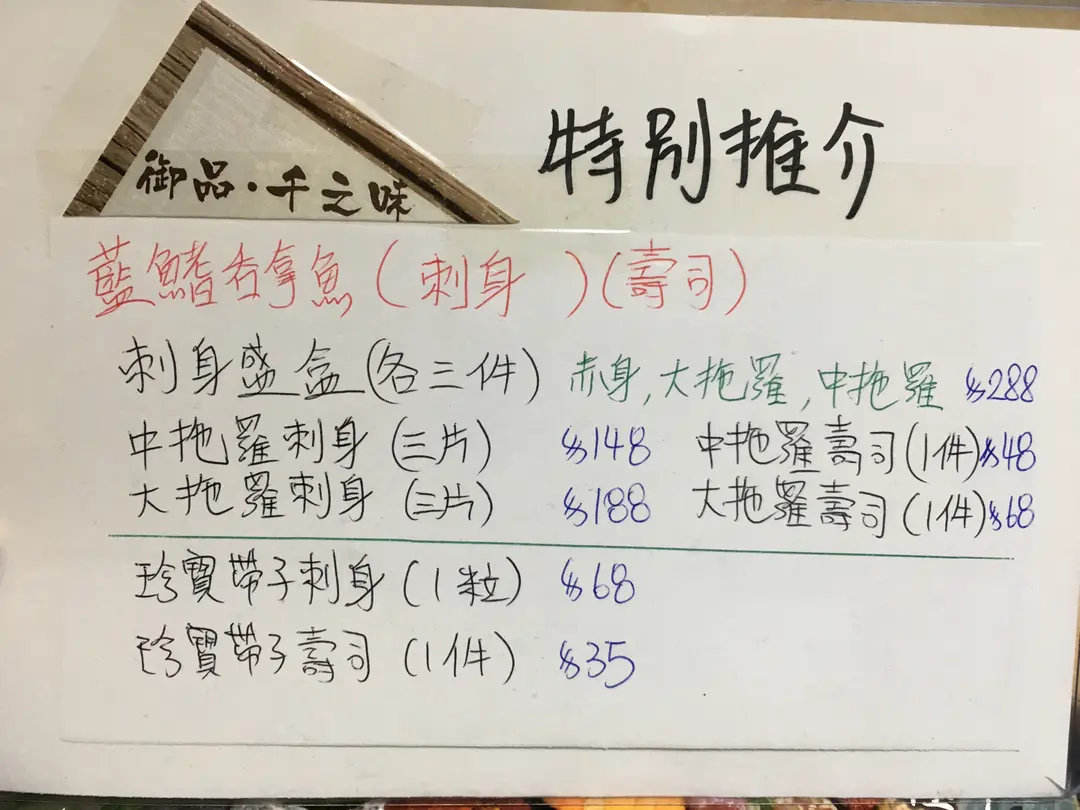 御品·千之味
特別推介
藍鰭吞拿魚(刺身 )(壽司)
刺身盛盒(各三件) 赤身,大拖羅,中拖羅 $288
中拖羅刺身(三片) $148 中拖羅壽司(1件)$48
大拖羅刺身(三片) $188 大拖羅壽司(1件)$68
珍寶帶子刺身(1粒) $68
珍寶帶子壽司(1件) $35